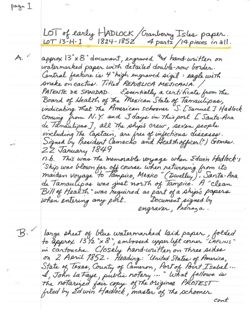 page 1
LOT of early HADLOCK/Cranberry Isles paper.
LOT 13-H-1 1824-1852 4 parts/19 pieces in all.
A. approx 13"x8" document, engraved & hand-written on
watermarked paper with detailed double-row border.
Central feature is 4" high engraved sigil - eagle with
snake on cactus. Titled REPUBLICA MEXICANA
PATENTE DE SANIDAD. Essentially a certificate from the
Board of Health of the Mexican State of Tamaulipas,
indicating that the American schooner S. (Samuel) Hadlock
coming from N.Y. and 3 days in this port [Santa Ana
de Tamaulipas], all the ship's crew, seven people
including the Captain, are free of infectious diseases.
Signed by President Camacho and Health officer(?) Gomez
22 January 1849
n.b. This was the memorable voyage when Edwin Hadlock's
ship was blown far off course when returning from its
maiden voyage to Tampico, Mexico (Dwelley). Santa Ana
de Tamaulipas was port north of Tampico. A "clean
Bill of Health" was required as part of a ship's papers
when entering any port. Document signed by
engraver, Pedraza.
B. large sheet of blue watermarked laid paper, folded
to approx. 13½"x8", embossed upper left corner
in cartouche. Closely hand-written on three sides
on 2 April 1852. Heading: United States of America,
State of Texas, County of Cameron, Port of Point Isabel...
I, John La Faye, public notary..." What follows is
the notarized fair copy of the original PROTEST
filed by Edwin Hadlock, master of the schooner
cont